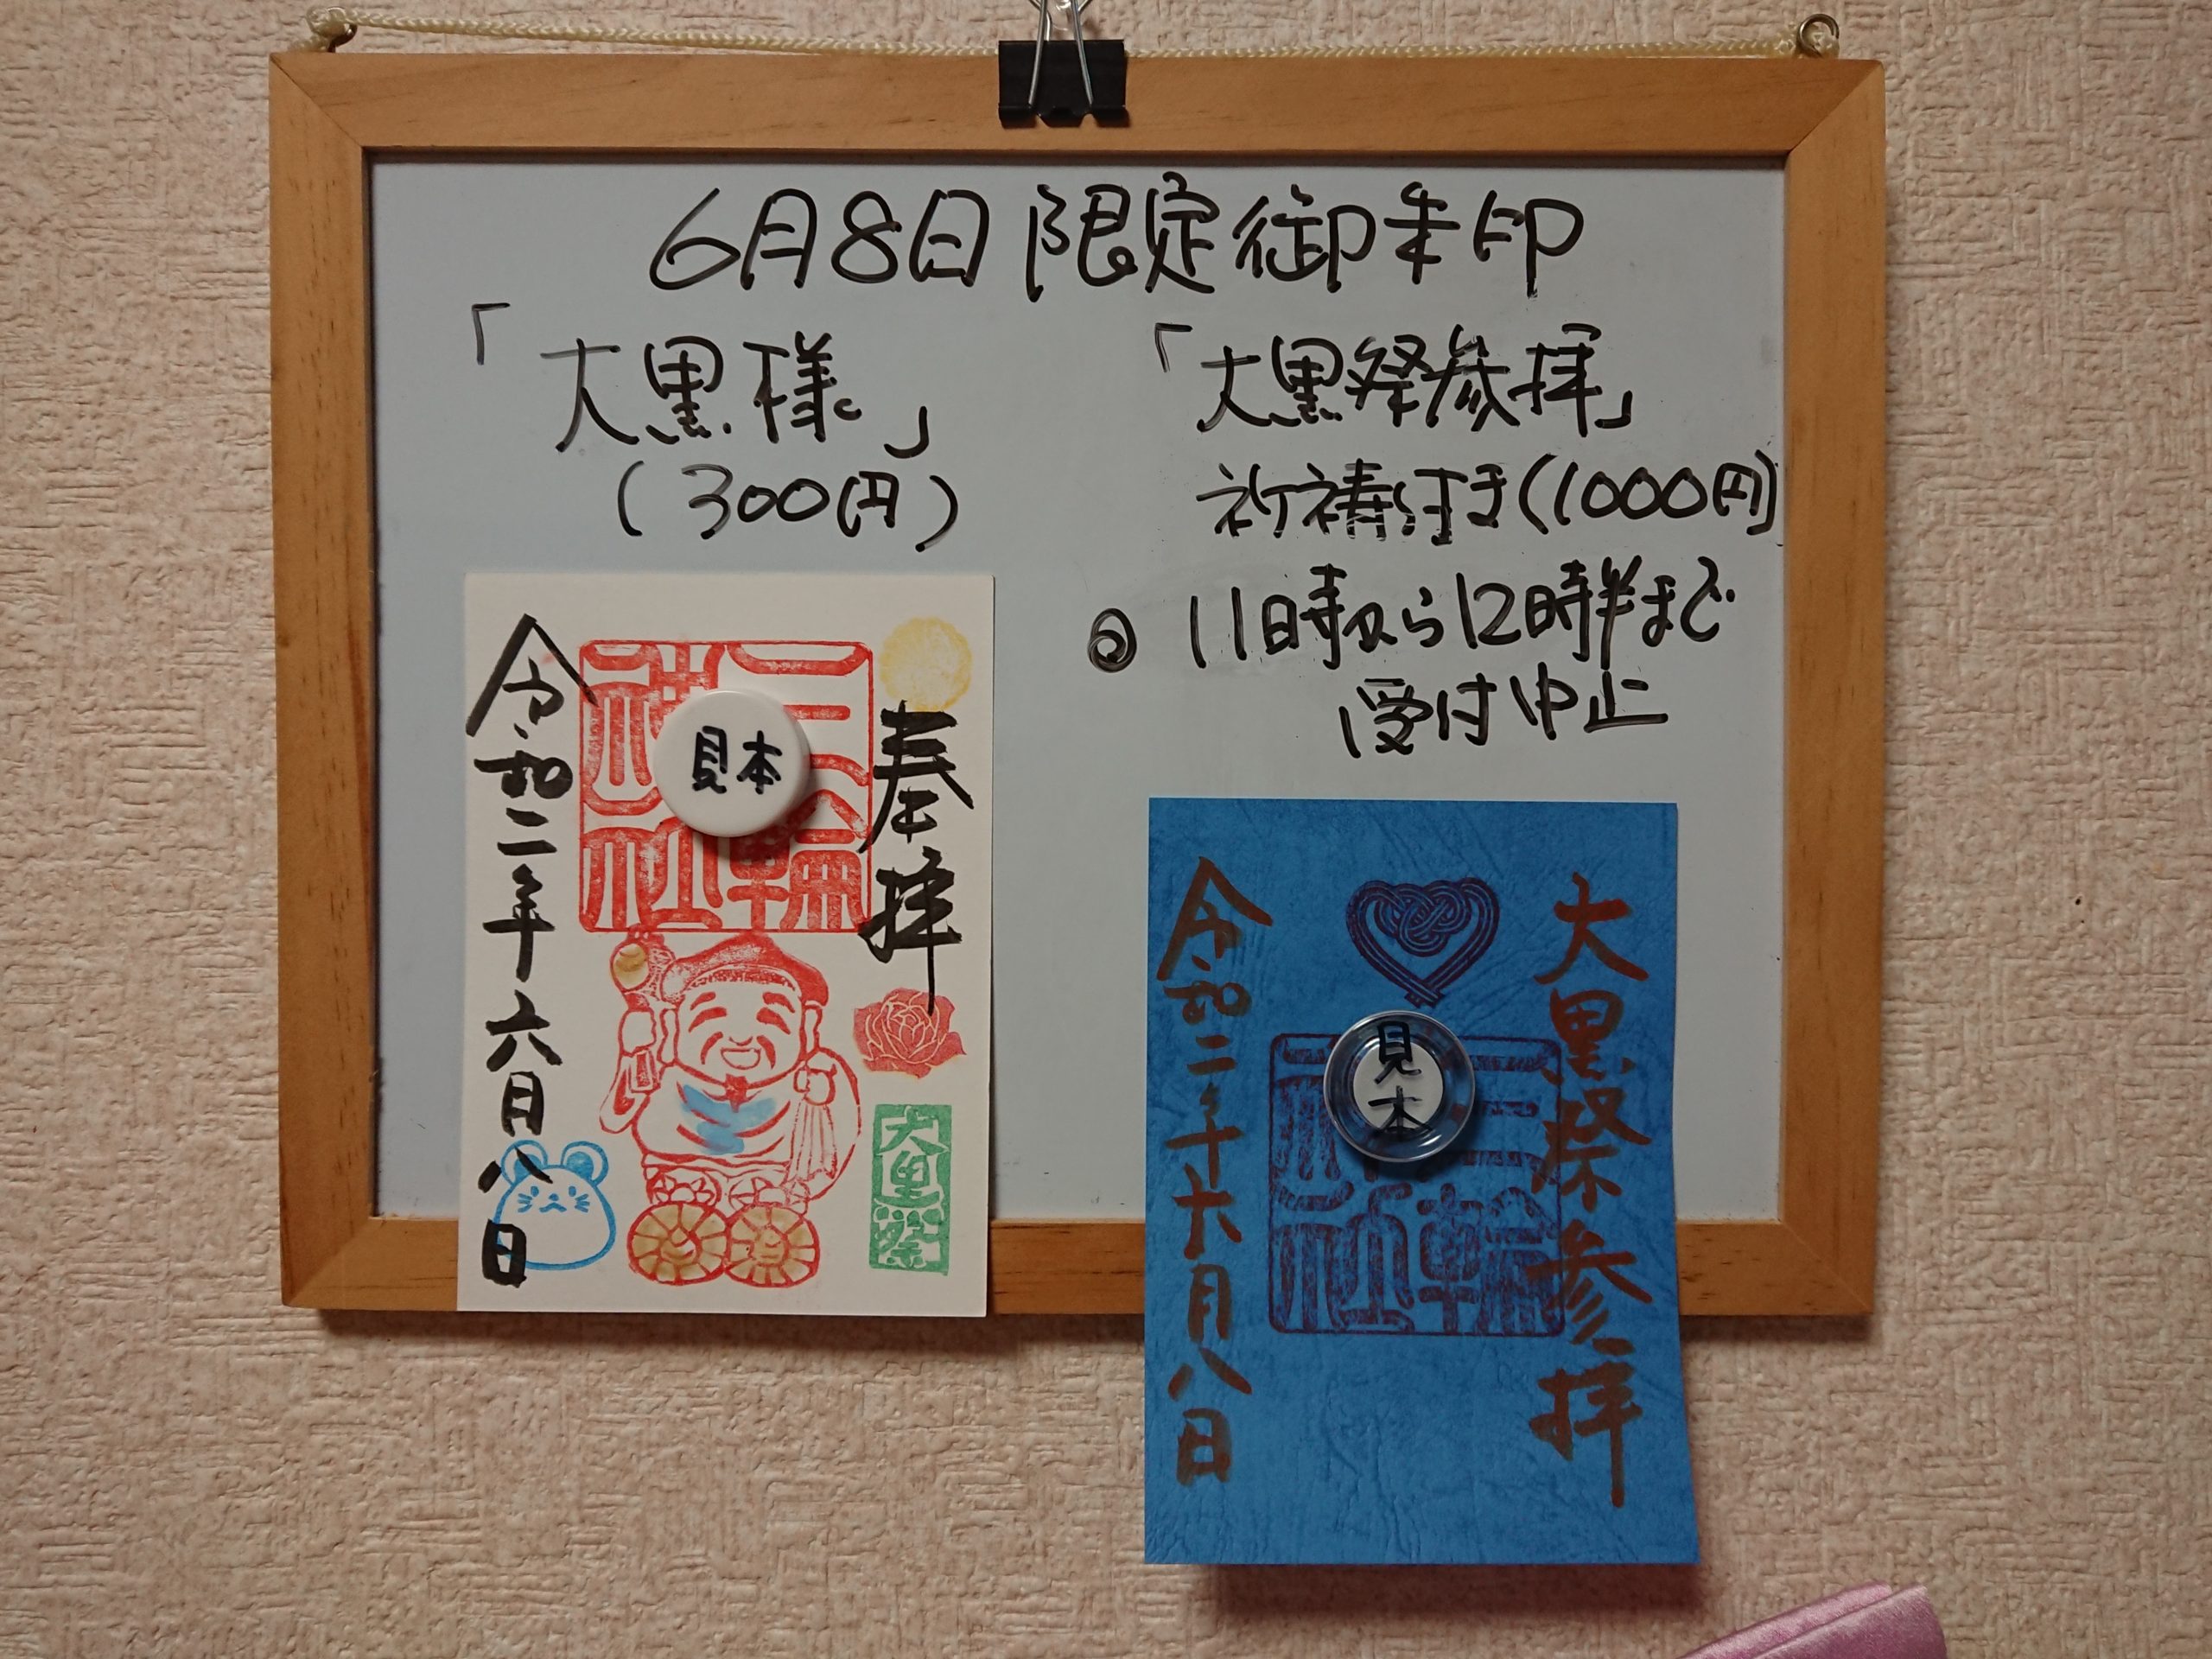 6月8日限定御朱印
「大黒様」
(300円)
「大黒祭参拝」
祈祷付き(1000円)
◎ 11時から12時半まで
受付中止
奉拝
三輪神社
見本
令和二年六月八日
大黒祭
大黒祭参拝
三輪神社
見本
令和二年六月八日